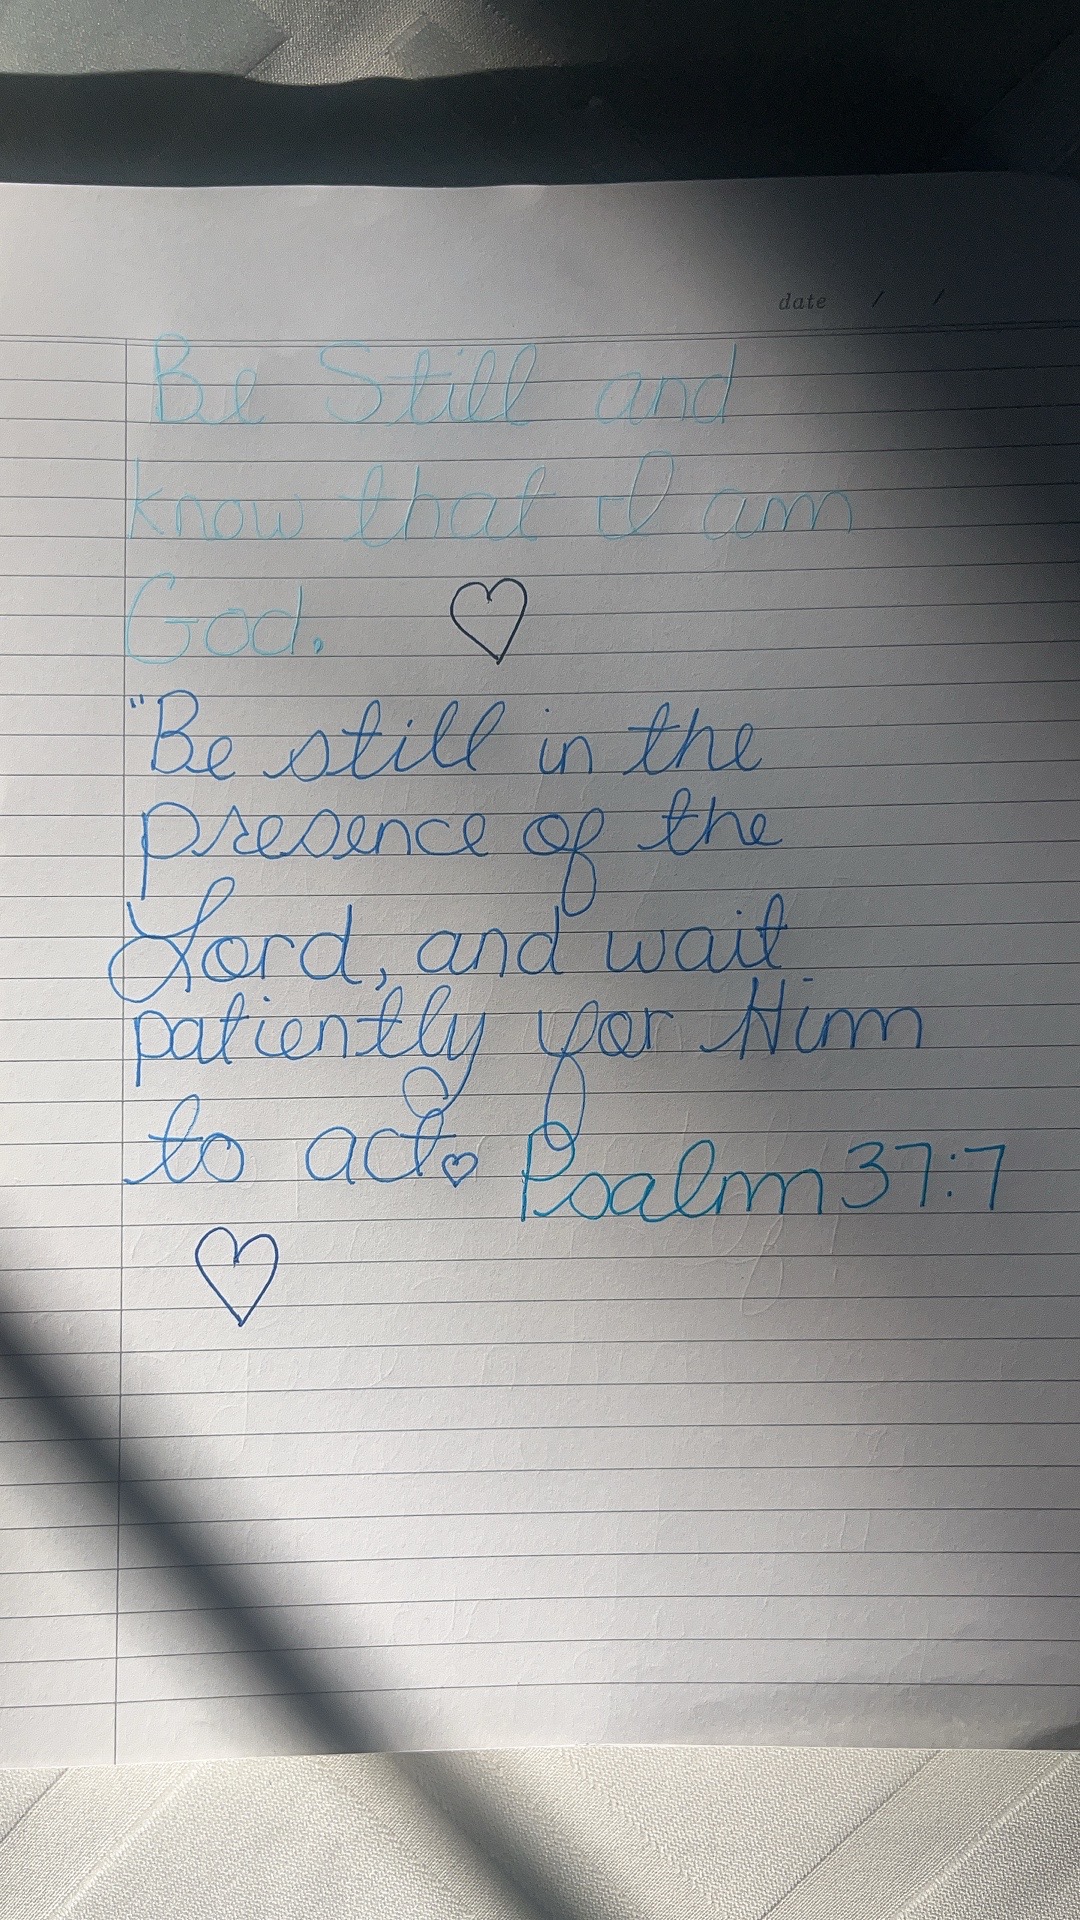 date / /
Be Still and
know that I am
God.
"Be still in the
presence of the
Lord, and wait
patiently for Him
to act. Psalm 37:7